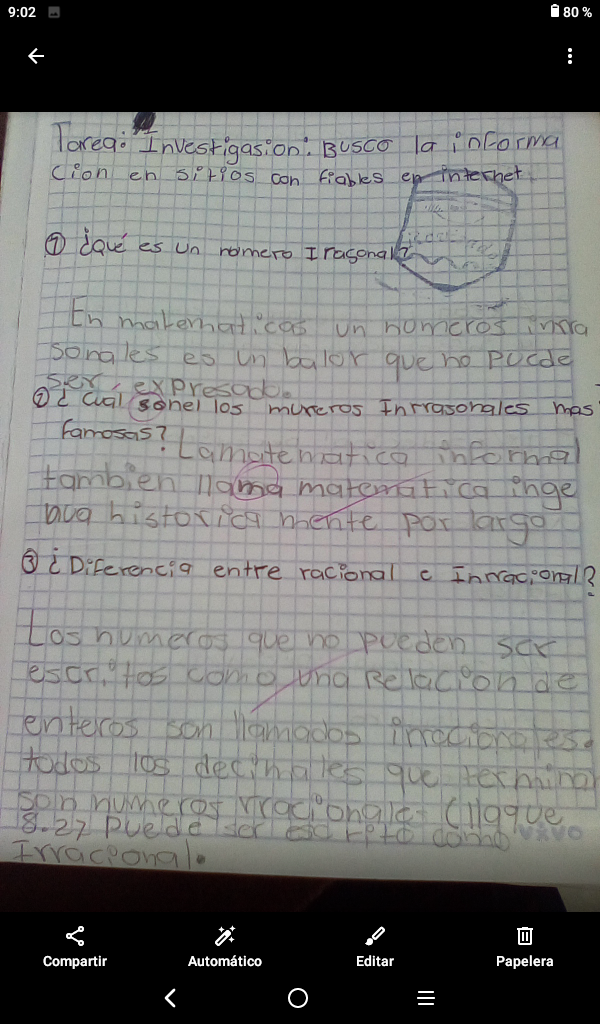 9:02
80 %
Tarea: Investigasion: Busco la informa
cion en sitios con fiables en internet.
① ¿qué es un nomero Irasonal?
En matematicas un nomeros inrra
sonales es un balor que no puede
ser expresado.
② ¿Cuál sonel los mureros Inrrasonales mas
famosas? Lamatematica informal
tambien llama matematica inge
nua historica mente por largo
③ ¿Diferencia entre racional e Inrracional?
Los numeros que no pueden ser
escritos como una Relacion de
enteros son llamados irracionales.
todos los decimales que terminal
son numeros
8.27 puede ser como
Irracional.
vivo
Compartir
Automático
Editar
Papelera